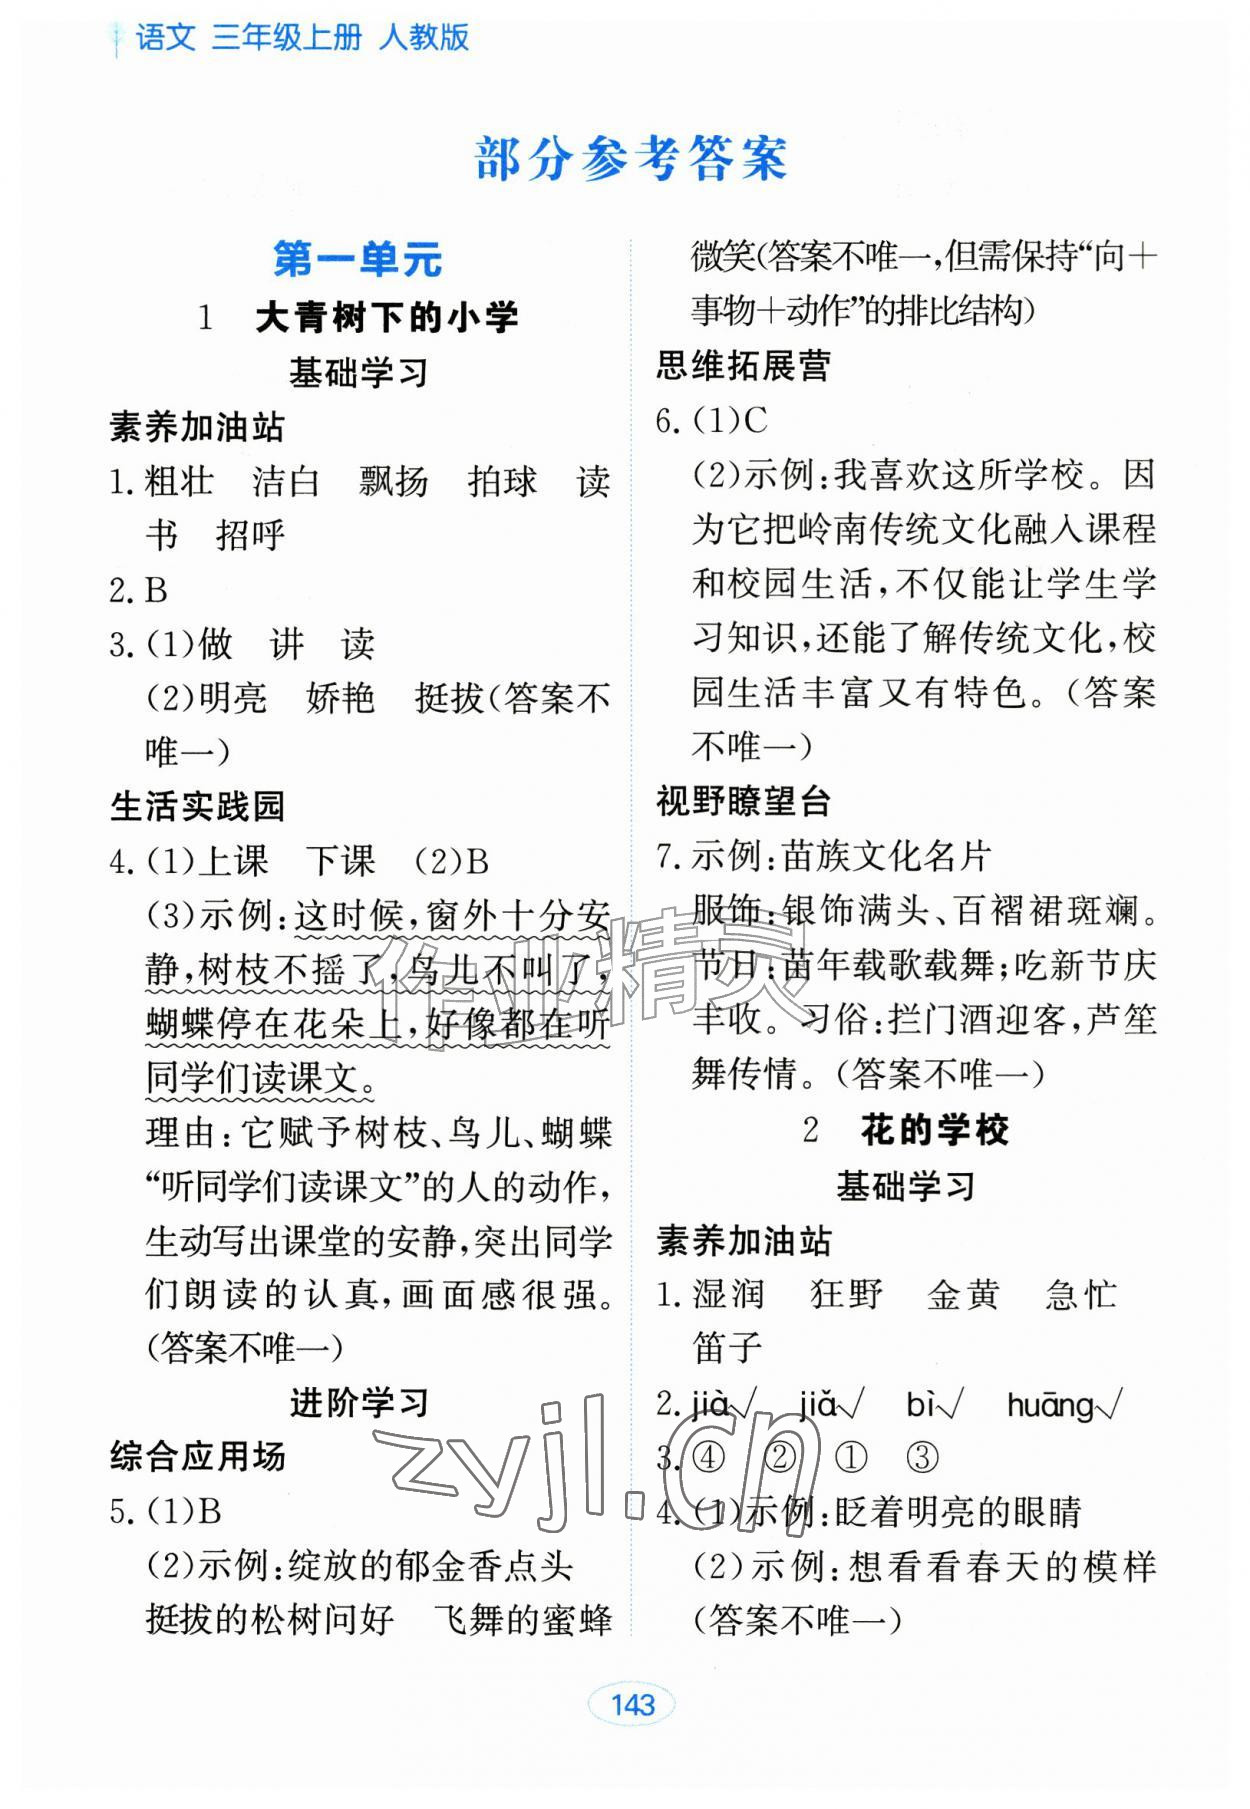 语文 三年级上册 人教版
部分参考答案
第一单元
1 大青树下的小学
基础学习
素养加油站
1.粗壮 洁白 飘扬 拍球 读
书 招呼
2.B
3.(1)做 讲 读
(2)明亮 娇艳 挺拔(答案不
唯一)
生活实践园
4.(1)上课 下课 (2)B
(3)示例:这时候,窗外十分安
静,树枝不摇了,鸟儿不叫了,
蝴蝶停在花朵上,好像都在听
同学们读课文。
理由:它赋予树枝、鸟儿、蝴蝶
“听同学们读课文”的人的动作,
生动写出课堂的安静,突出同学
们朗读的认真,画面感很强。
(答案不唯一)
进阶学习
综合应用场
5.(1)B
(2)示例:绽放的郁金香点头
挺拔的松树问好 飞舞的蜜蜂
微笑(答案不唯一,但需保持“向+
事物+动作”的排比结构)
思维拓展营
6.(1)C
(2)示例:我喜欢这所学校。因
为它把岭南传统文化融入课程
和校园生活,不仅能让学生学
习知识,还能了解传统文化,校
园生活丰富又有特色。(答案
不唯一)
视野瞭望台
7.示例:苗族文化名片
服饰:银饰满头、百褶裙斑斓。
节日:苗年载歌载舞;吃新节庆
丰收。习俗:拦门酒迎客,芦笙
舞传情。(答案不唯一)
2 花的学校
基础学习
素养加油站
1.湿润 狂野 金黄 急忙
笛子
2.jià√ jiǎ√ bì√ huāng√
3.④ ② ① ③
4.(1)示例:眨着明亮的眼睛
(2)示例:想看看春天的模样
(答案不唯一)
143
作业精灵
zyjl.cn